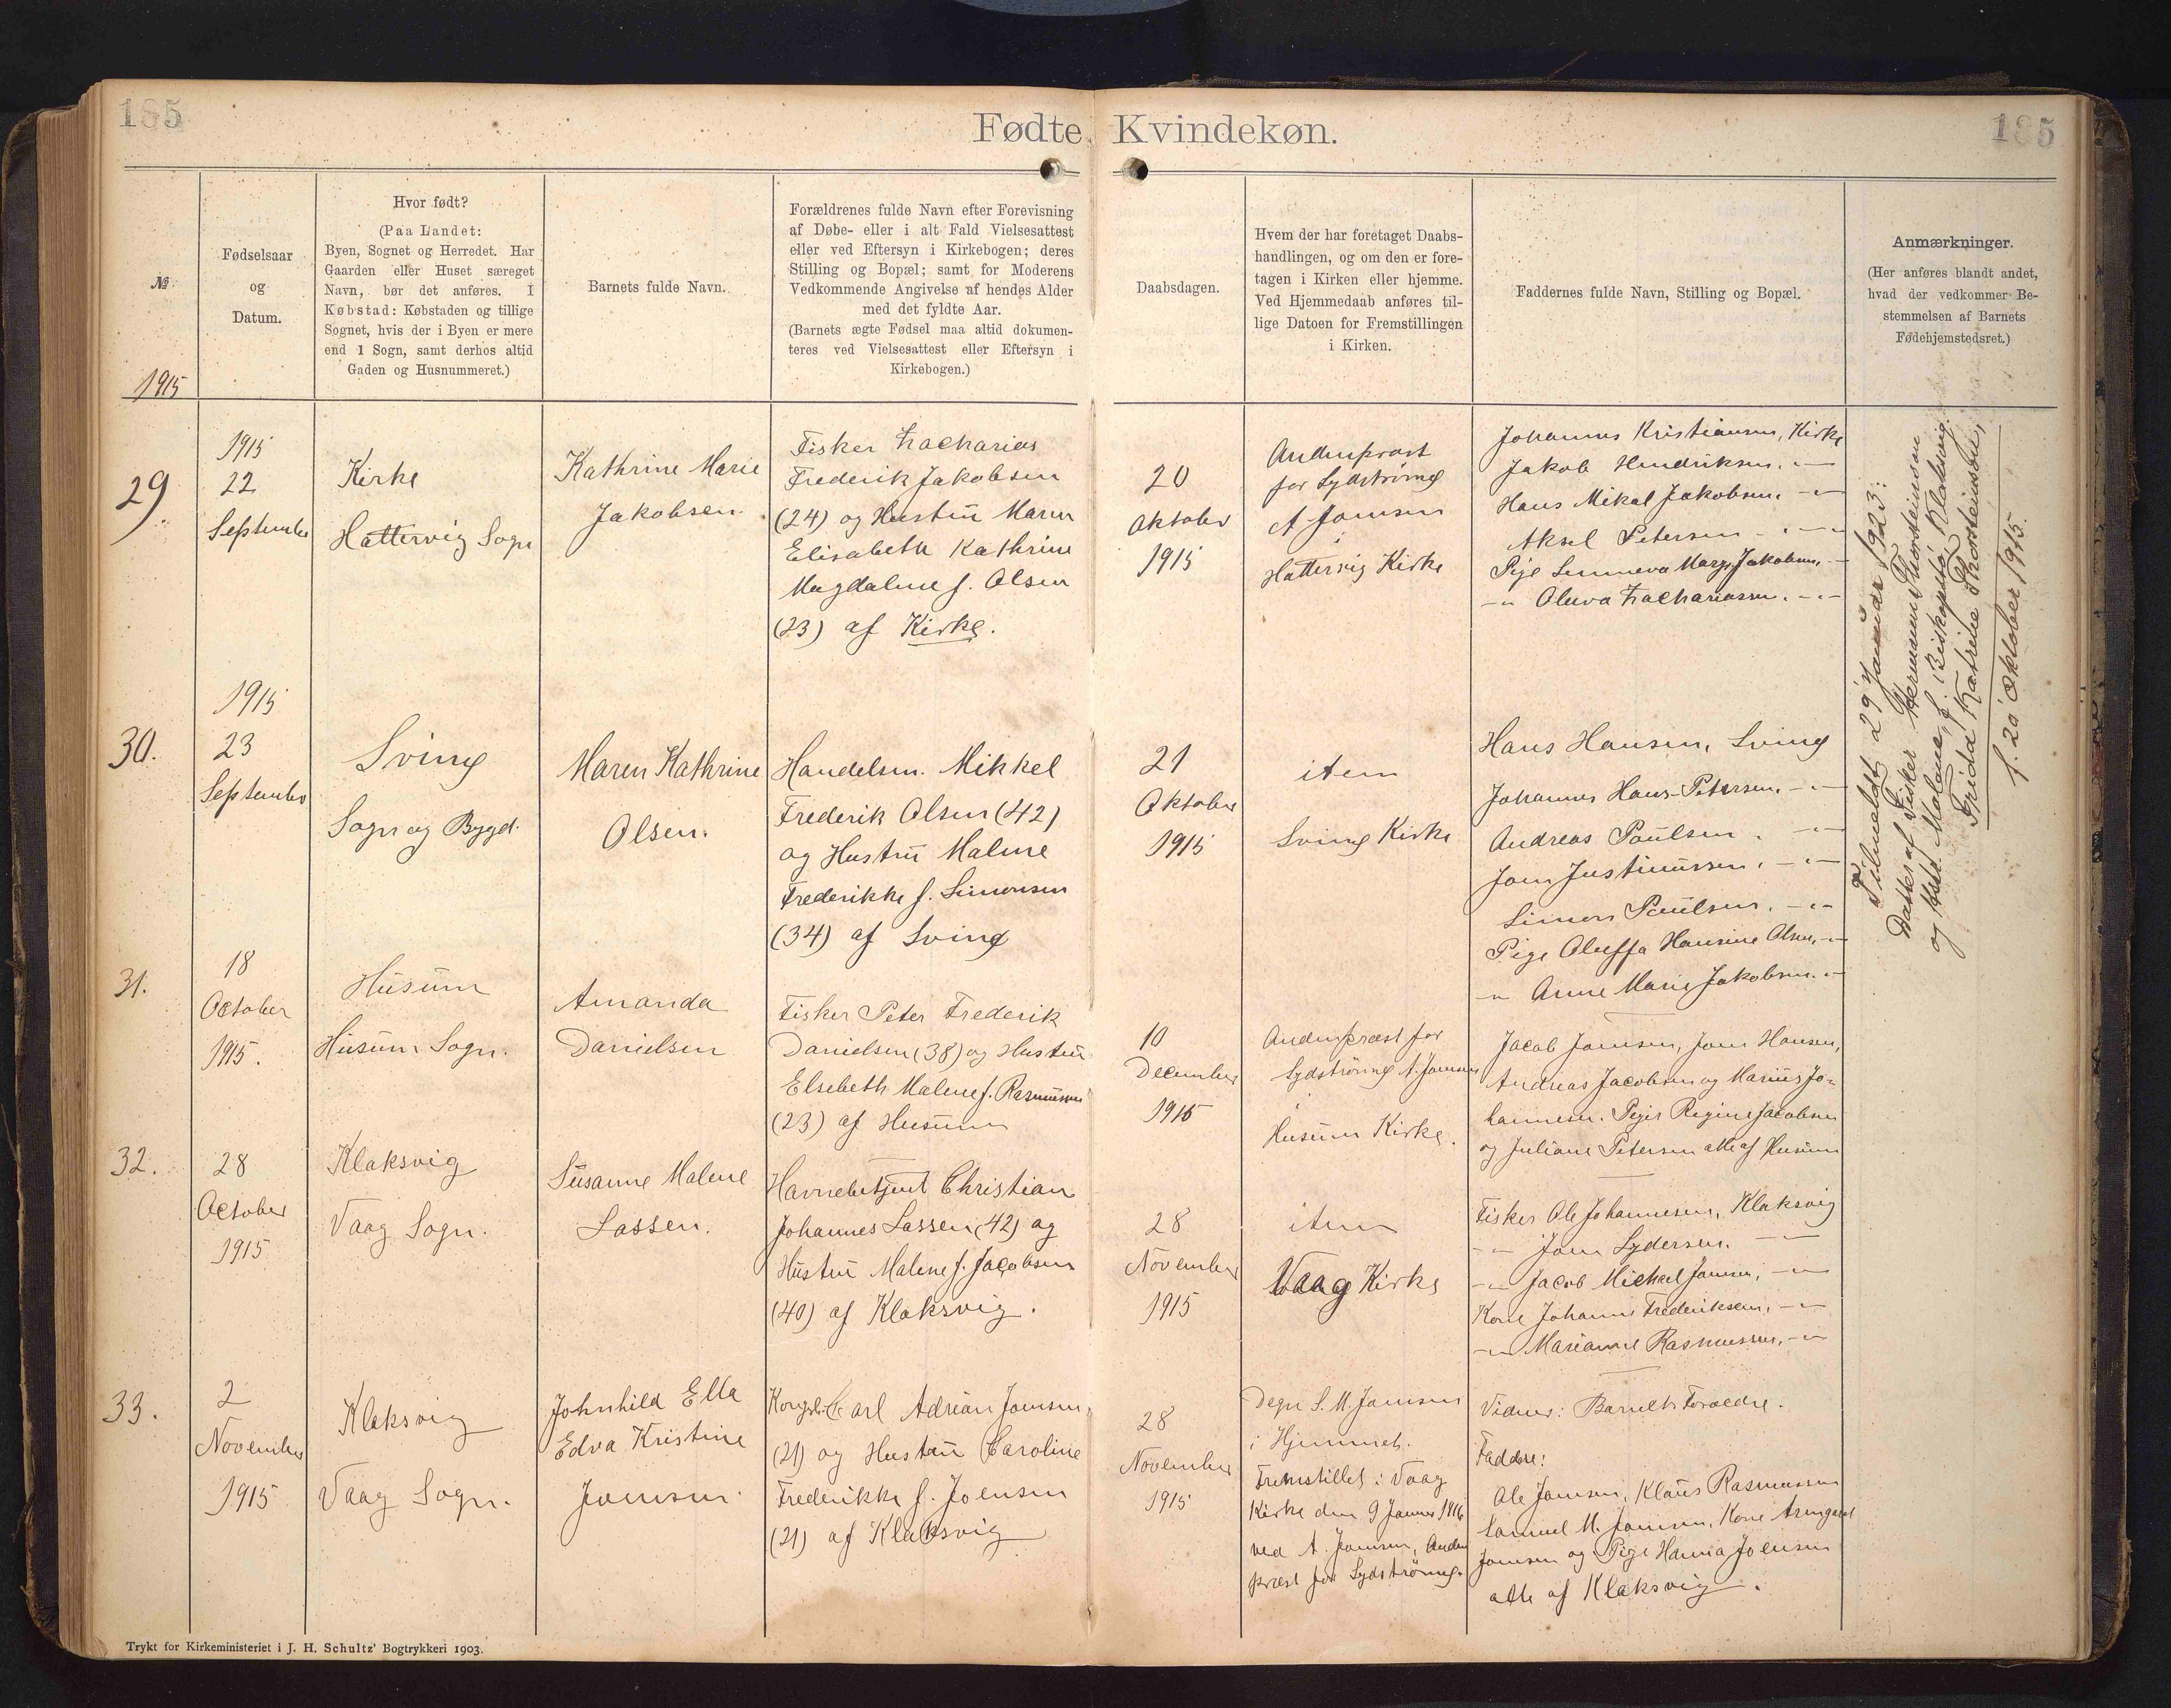 185
Fødte Kvindekøn.
185
№
Fødselsaar
og
Datum.
Hvor født?
(Paa Landet:
Byen, Sognet og Herredet. Har
Gaarden eller Huset særeget
Navn, bør det anføres. I
Købstad: Købstaden og tillige
Sognet, hvis der i Byen er mere
end 1 Sogn, samt derhos altid
Gaden og Husnummeret.)
Barnets fulde Navn.
Forældrenes fulde Navn efter Forevisning
af Døbe- eller i alt Fald Vielsesattest
eller ved Eftersyn i Kirkebogen; deres
Stilling og Bopæl; samt for Moderens
Vedkommende Angivelse af hendes Alder
med det fyldte Aar.
(Barnets ægte Fødsel maa altid dokumen-
teres ved Vielsesattest eller Eftersyn i
Kirkebogen.)
Daabsdagen.
Hvem der har foretaget Daabs-
handlingen, og om den er fore-
tagen i Kirken eller hjemme.
Ved Hjemmedaab anføres til-
lige Datoen for Fremstillingen
i Kirken.
Faddernes fulde Navn, Stilling og Bopæl.
Anmærkninger.
(Her anføres blandt andet,
hvad der vedkommer Be-
stemmelsen af Barnets
Fødehjemstedsret.)
1915
29
1915
22
September
Kirke
Hattervig Sogn
Kathrine Marie
Jakobsen
Fisker Zacharias
Frederik Jakobsen
(24) og Hustru Maren
Elisabeth Kathrine
Magdalene f. Olsen
(23) af Kirke.
20
Oktober
1915
Andenpræst
for Sydstrømø
A Joensen
i
Hattervig Kirke
Johannes Kristiansen, Kirke
Jakob Hendriksen. -"-
Hans Mikal Jakobsen. -"-
Aksel Petersen -"-
Pige Sunneva Marg. Jakobsen, -
-"- Oluva Zachariassen. -"-
30.
1915
23
September
Sving
Sogn og Bygd.
Maren Kathrine
Olsen.
Handelsm. Mikkel
Frederik Olsen (42)
og Hustru Malene
Frederikke f. Simonsen
(34) af Sving
21
Oktober
1915
item
Sving Kirke
Hans Hansen, Sving
Johannes Hans-Petersen. -"-
Andreas Poulsen. -"-
Joen Justinussen. -"-
Simon Poulsen. -"-
Pige Oluffa Hansine Olsen, -"-
-"- Anne Marie Jakobsen. -"-
31.
18
October
1915.
Husum
Husum Sogn.
Amanda
Danielsen
Fisker Peter Frederik
Danielsen (38) og Hustru
Elsebeth Malene f. Rasmussen
(23) af Husum
10
December
1915
Andenpræst for
Sydstrømø A. Joensen
i
Husum Kirke.
Jacob Joensen, Joen Hansen,
Andreas Jacobsen og Marius Jo=
hannesen. Piger Regine Jacobsen
og Juliane Petersen alle af Husum
32.
28
October
1915
Klaksvig
Vaag Sogn.
Susanne Malene
Lassen.
Havnebetjent Christian
Johannes Lassen (42) og
Hustru Malene f. Jacobsen
(40) af Klaksvig.
28
November
1915
item
Vaag Kirke
Fisker Ole Johannesen, Klaksvig
-"- Joen Sydersen. -"-
-"- Jacob Michael Joensen, -"-
Kone Johanne Frederiksen, -"-
-"- Marianne Rasmussen, -"-
33.
2
November
1915
Klaksvig
Vaag Sogn.
Johnhild Ella
Edva Kristine
Joensen
Carl Adrian Joensen
(21) og Hustru Caroline
Frederikke f. Joensen
(21) af Klaksvig
28
November
1915
Degn S. M. Joensen
i Hjemmet.
Fremstillet i Vaag
Kirke den 9 Januar 1916
ved A. Joensen, Anden
præst for Sydstrømø.
Vidner: Barnets Forældre.
Faddere:
Ole Joensen, Klaus Rasmussen
Samuel M. Joensen, Kone Armgard
Joensen og Pige Hanna Joensen
alle af Klaksvig.
Tilmeldt 29 Januar 1923:
Datter af Fisker Hermann Thorsteinson
og Hstr. Malene, f. Biskopstø, Klaksvig.
Frida Katrine Thorsteinson,
f. 20 Oktober 1915.
Trykt for Kirkeministeriet i J. H. Schultz' Bogtrykkeri 1903.